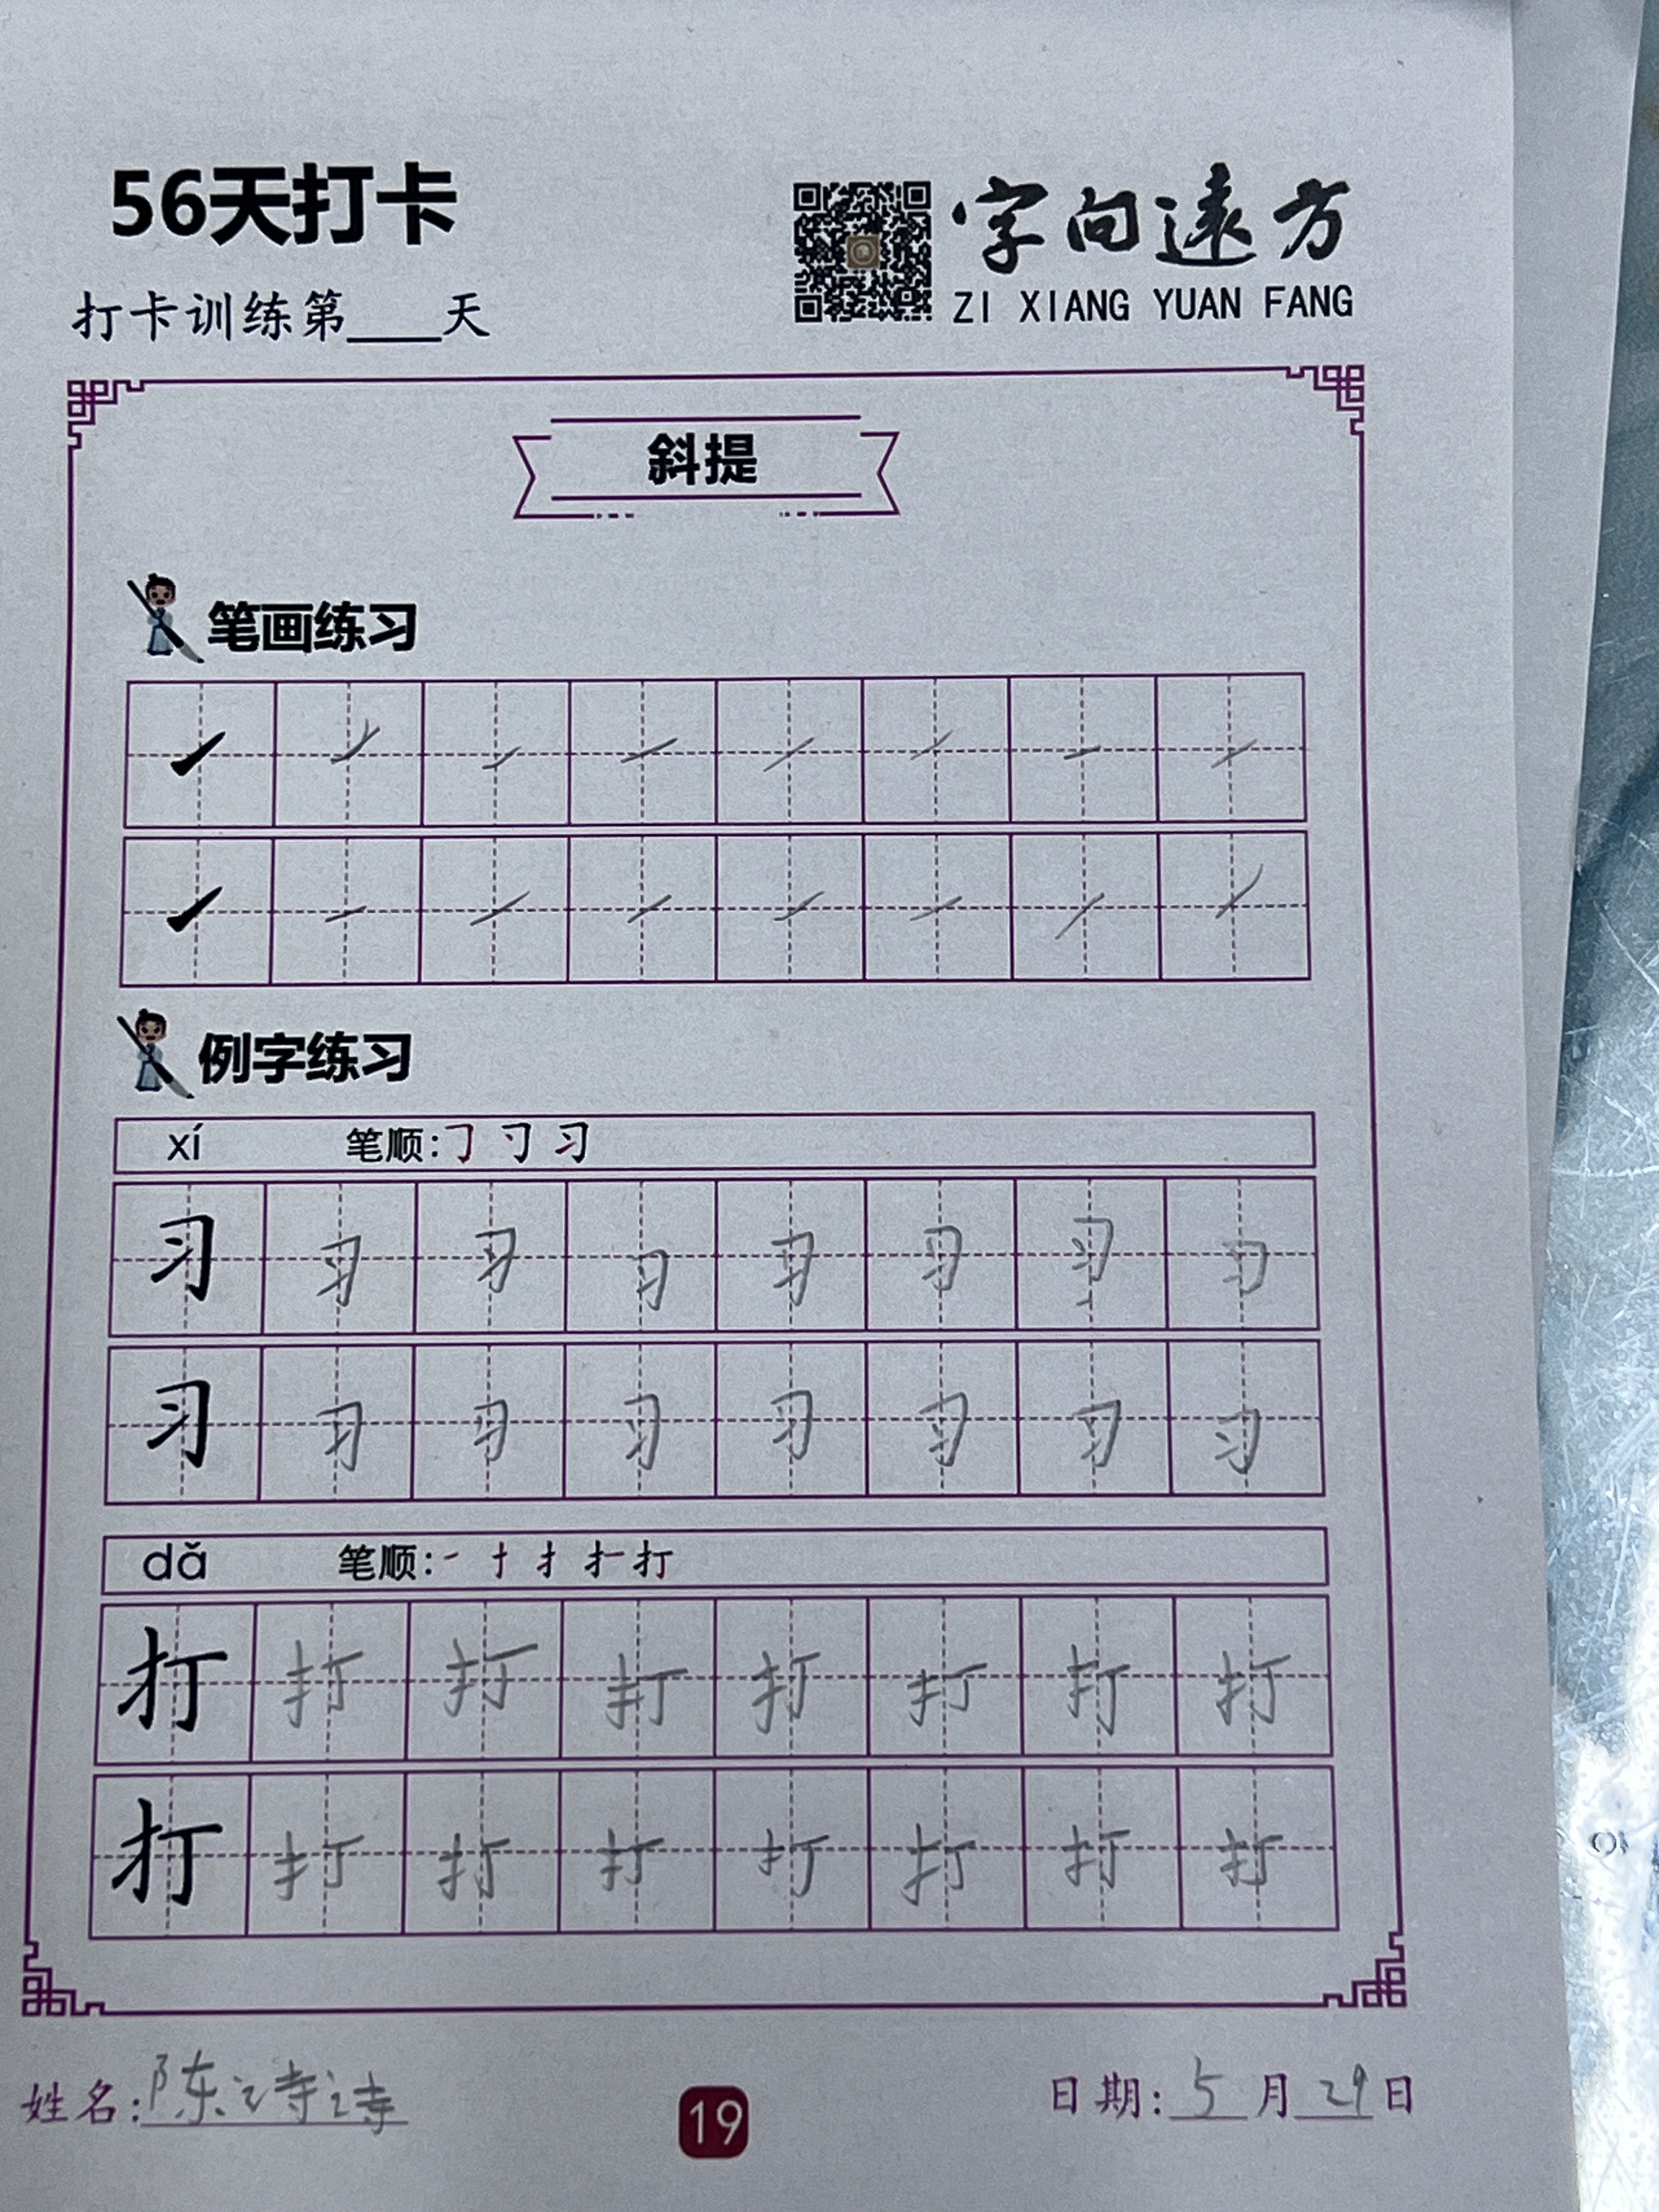 56天打卡
字向遠方
打卡训练第____天
ZI XIANG YUAN FANG
斜提
笔画练习
例字练习
xí 笔顺:
习 习 习 习 习 习 习 习
习 习 习 习 习 习 习 习
dǎ 笔顺: 打
打 打 打 打 打 打 打 打
打 打 打 打 打 打 打 打
姓名:陈诗诗
19
日期:5月29日